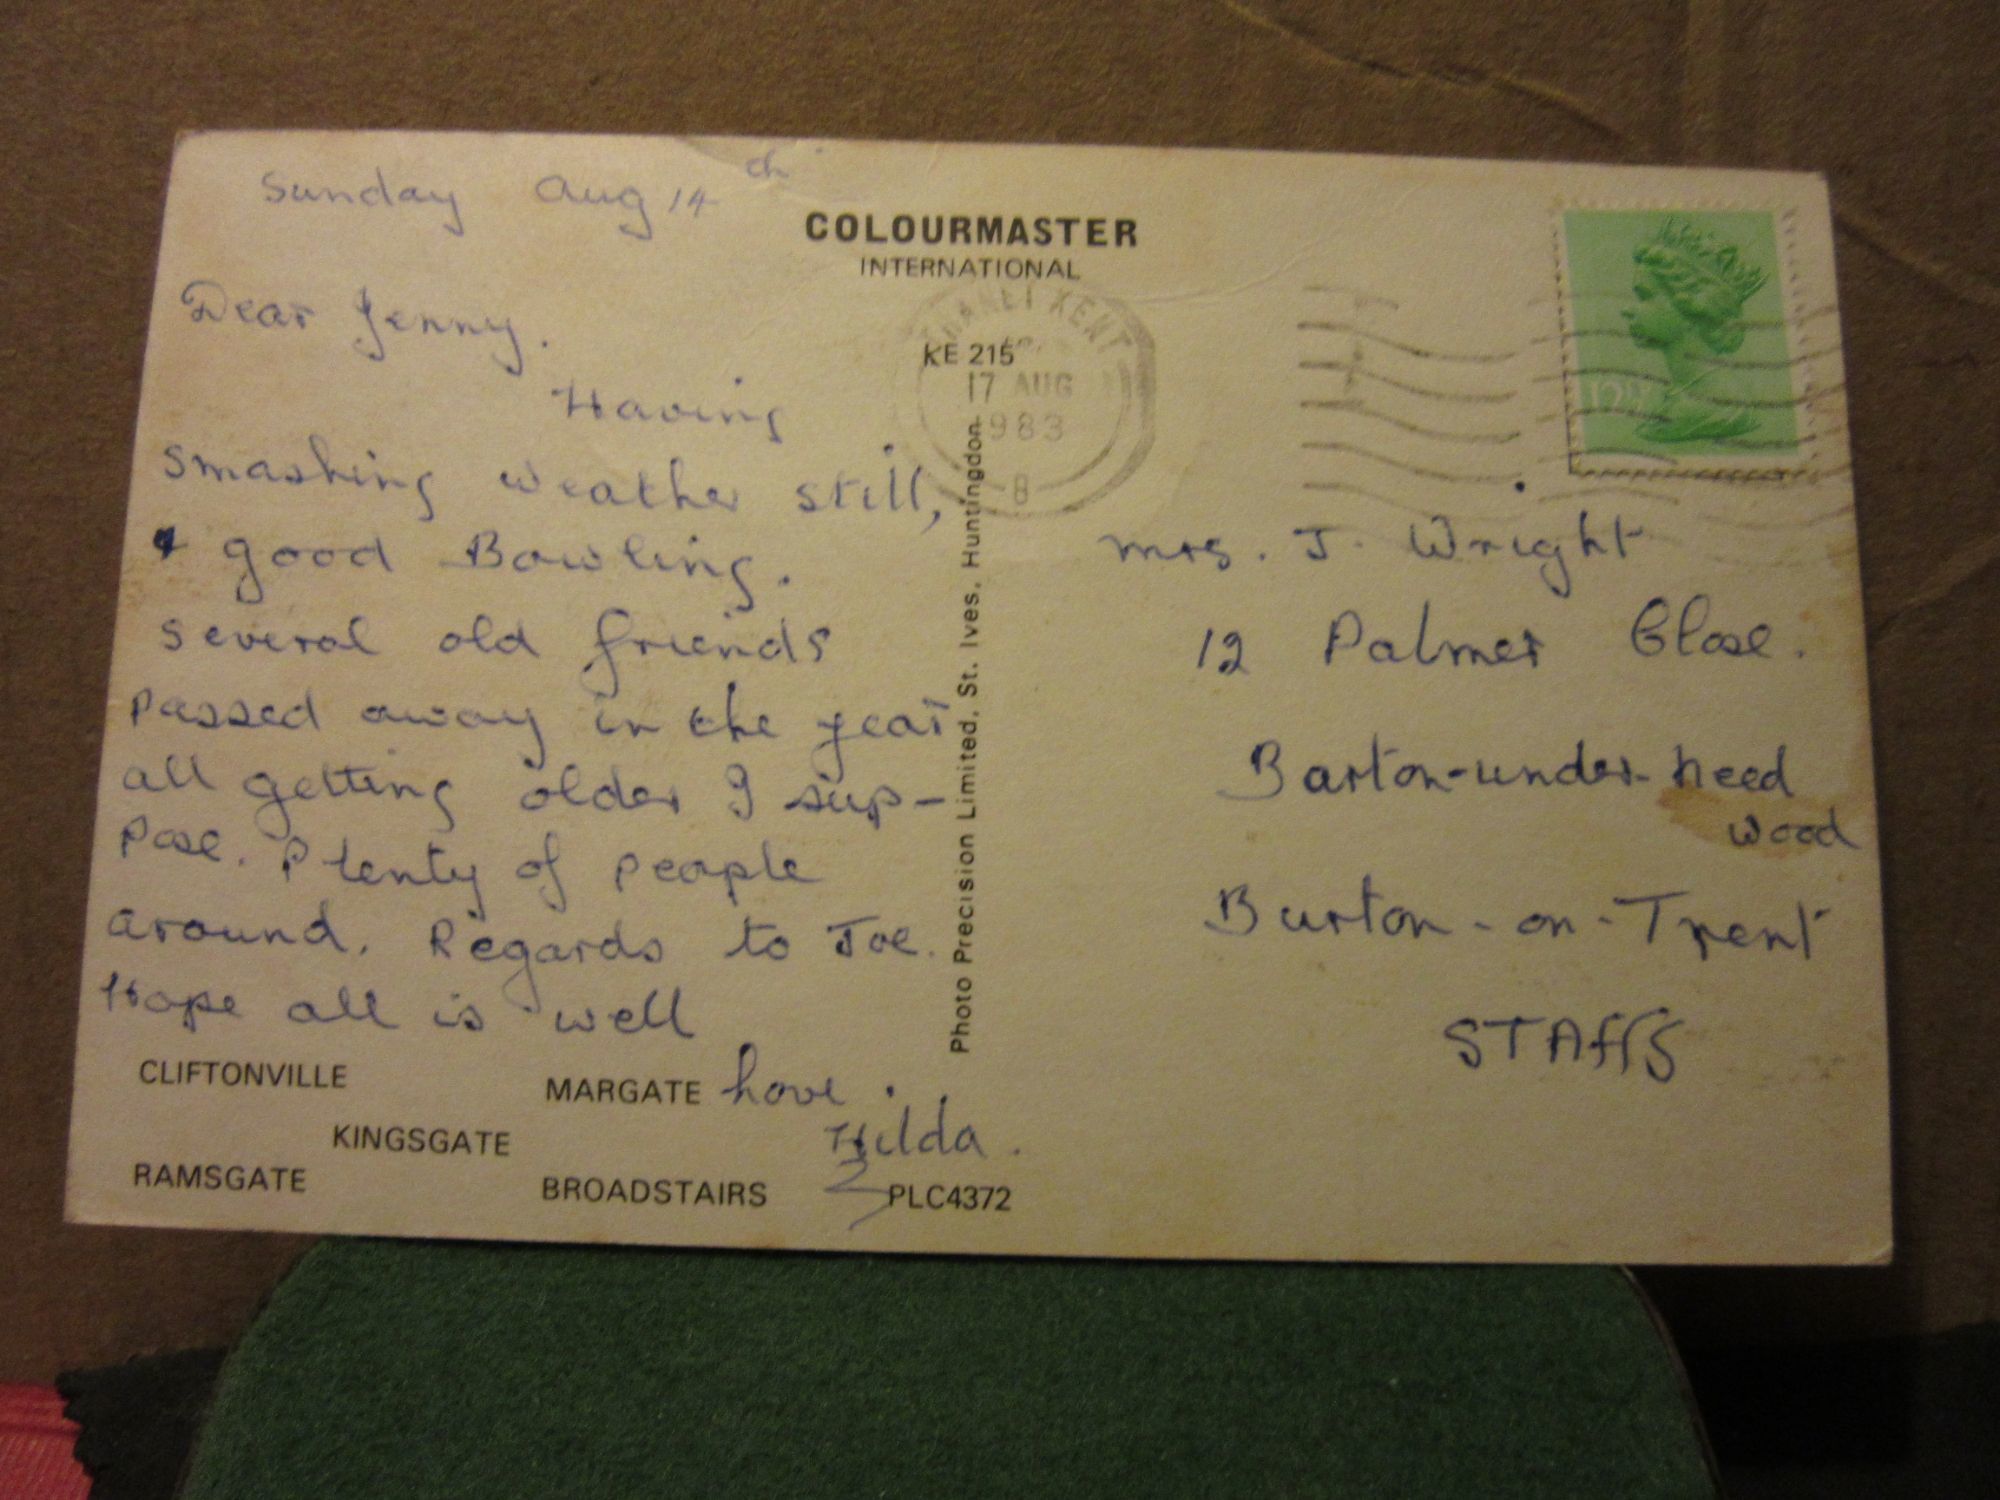 Sunday Aug 14th
Dear Jenny.
Having
smashing weather still,
& good Bowling.
several old friends
passed away in the year
all getting older I sup-
pose. Plenty of people
around. Regards to Joe.
Hope all is well
love.
Hilda.
CLIFTONVILLE
MARGATE
KINGSGATE
RAMSGATE
BROADSTAIRS
PLC4372
COLOURMASTER
INTERNATIONAL
KE 215
Photo Precision Limited, St. Ives, Huntingdon.
THANET KENT
17 AUG
1983
8
12½P
Mrs. J. Wright
12 Palmer Close.
Barton-under-need
wood
Burton-on-Trent
STAFFS